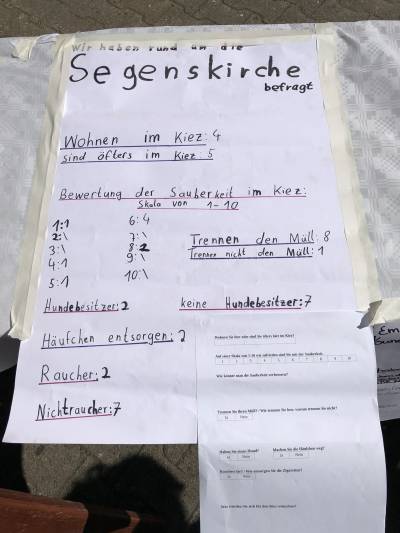 Wir haben rund um die
Segenskirche
befragt
Wohnen im Kiez: 4
sind öfters im Kiez: 5
Bewertung der Sauberkeit im Kiez:
Skala von 1-10
1:1
2:\
3:\
4:1
5:1
6:4
7:\
8:2
9:\
10:\
Trennen den Müll: 8
Trennen nicht den Müll: 1
Hundebesitzer: 2
keine Hundebesitzer: 7
Häufchen entsorgen: 2
Raucher: 2
Nichtraucher: 7
Wohnen Sie hier oder sind Sie öfters hier im Kiez?
Auf einer Skala von 1-10 wie zufrieden sind Sie mit der Sauberkeit
1 2 3 4 5 6 7 8 9 10
Wie könnte man die Sauberkeit verbessern?
Trennen Sie Ihren Müll? / Wie trennen Sie bzw. warum trennen Sie nicht?
Ja Nein
Haben Sie einen Hund?
Ja Nein
Machen Sie die Häufchen weg?
Ja Nein
Ja Nein